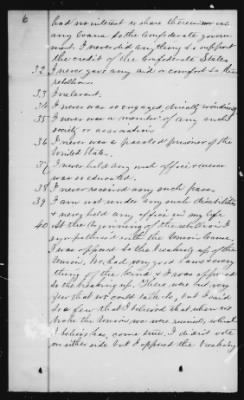 6
had no interest or share therein or in
any loans to the Confederate govern-
ment. I never did any thing to support
the credit of the Confederate States
32 I never gave any aid or comfort to the
rebellion.
33 Irrelevant.
34 I never was so engaged, directly or indirectly
35 I never was a member of any such
society or association
36 I never was a paroled prisoner of the
United States.
37 I never held any such office
was so educated.
38 I never received any such pass.
39 I am not under any such disabilities
& never held any office in my life
40 At the beginning of the war I
sympathized with the Union Cause,
I was opposed to the breaking up of the
Union. We had very good laws & every
thing of the kind & I was opposed
to the breaking up. There were but very
few that we could talk to, but I said
to a few that I believed that when we
broke the Union we were ruined, which
I believe has come true. I didn't vote
on either side but I opposed the breaking